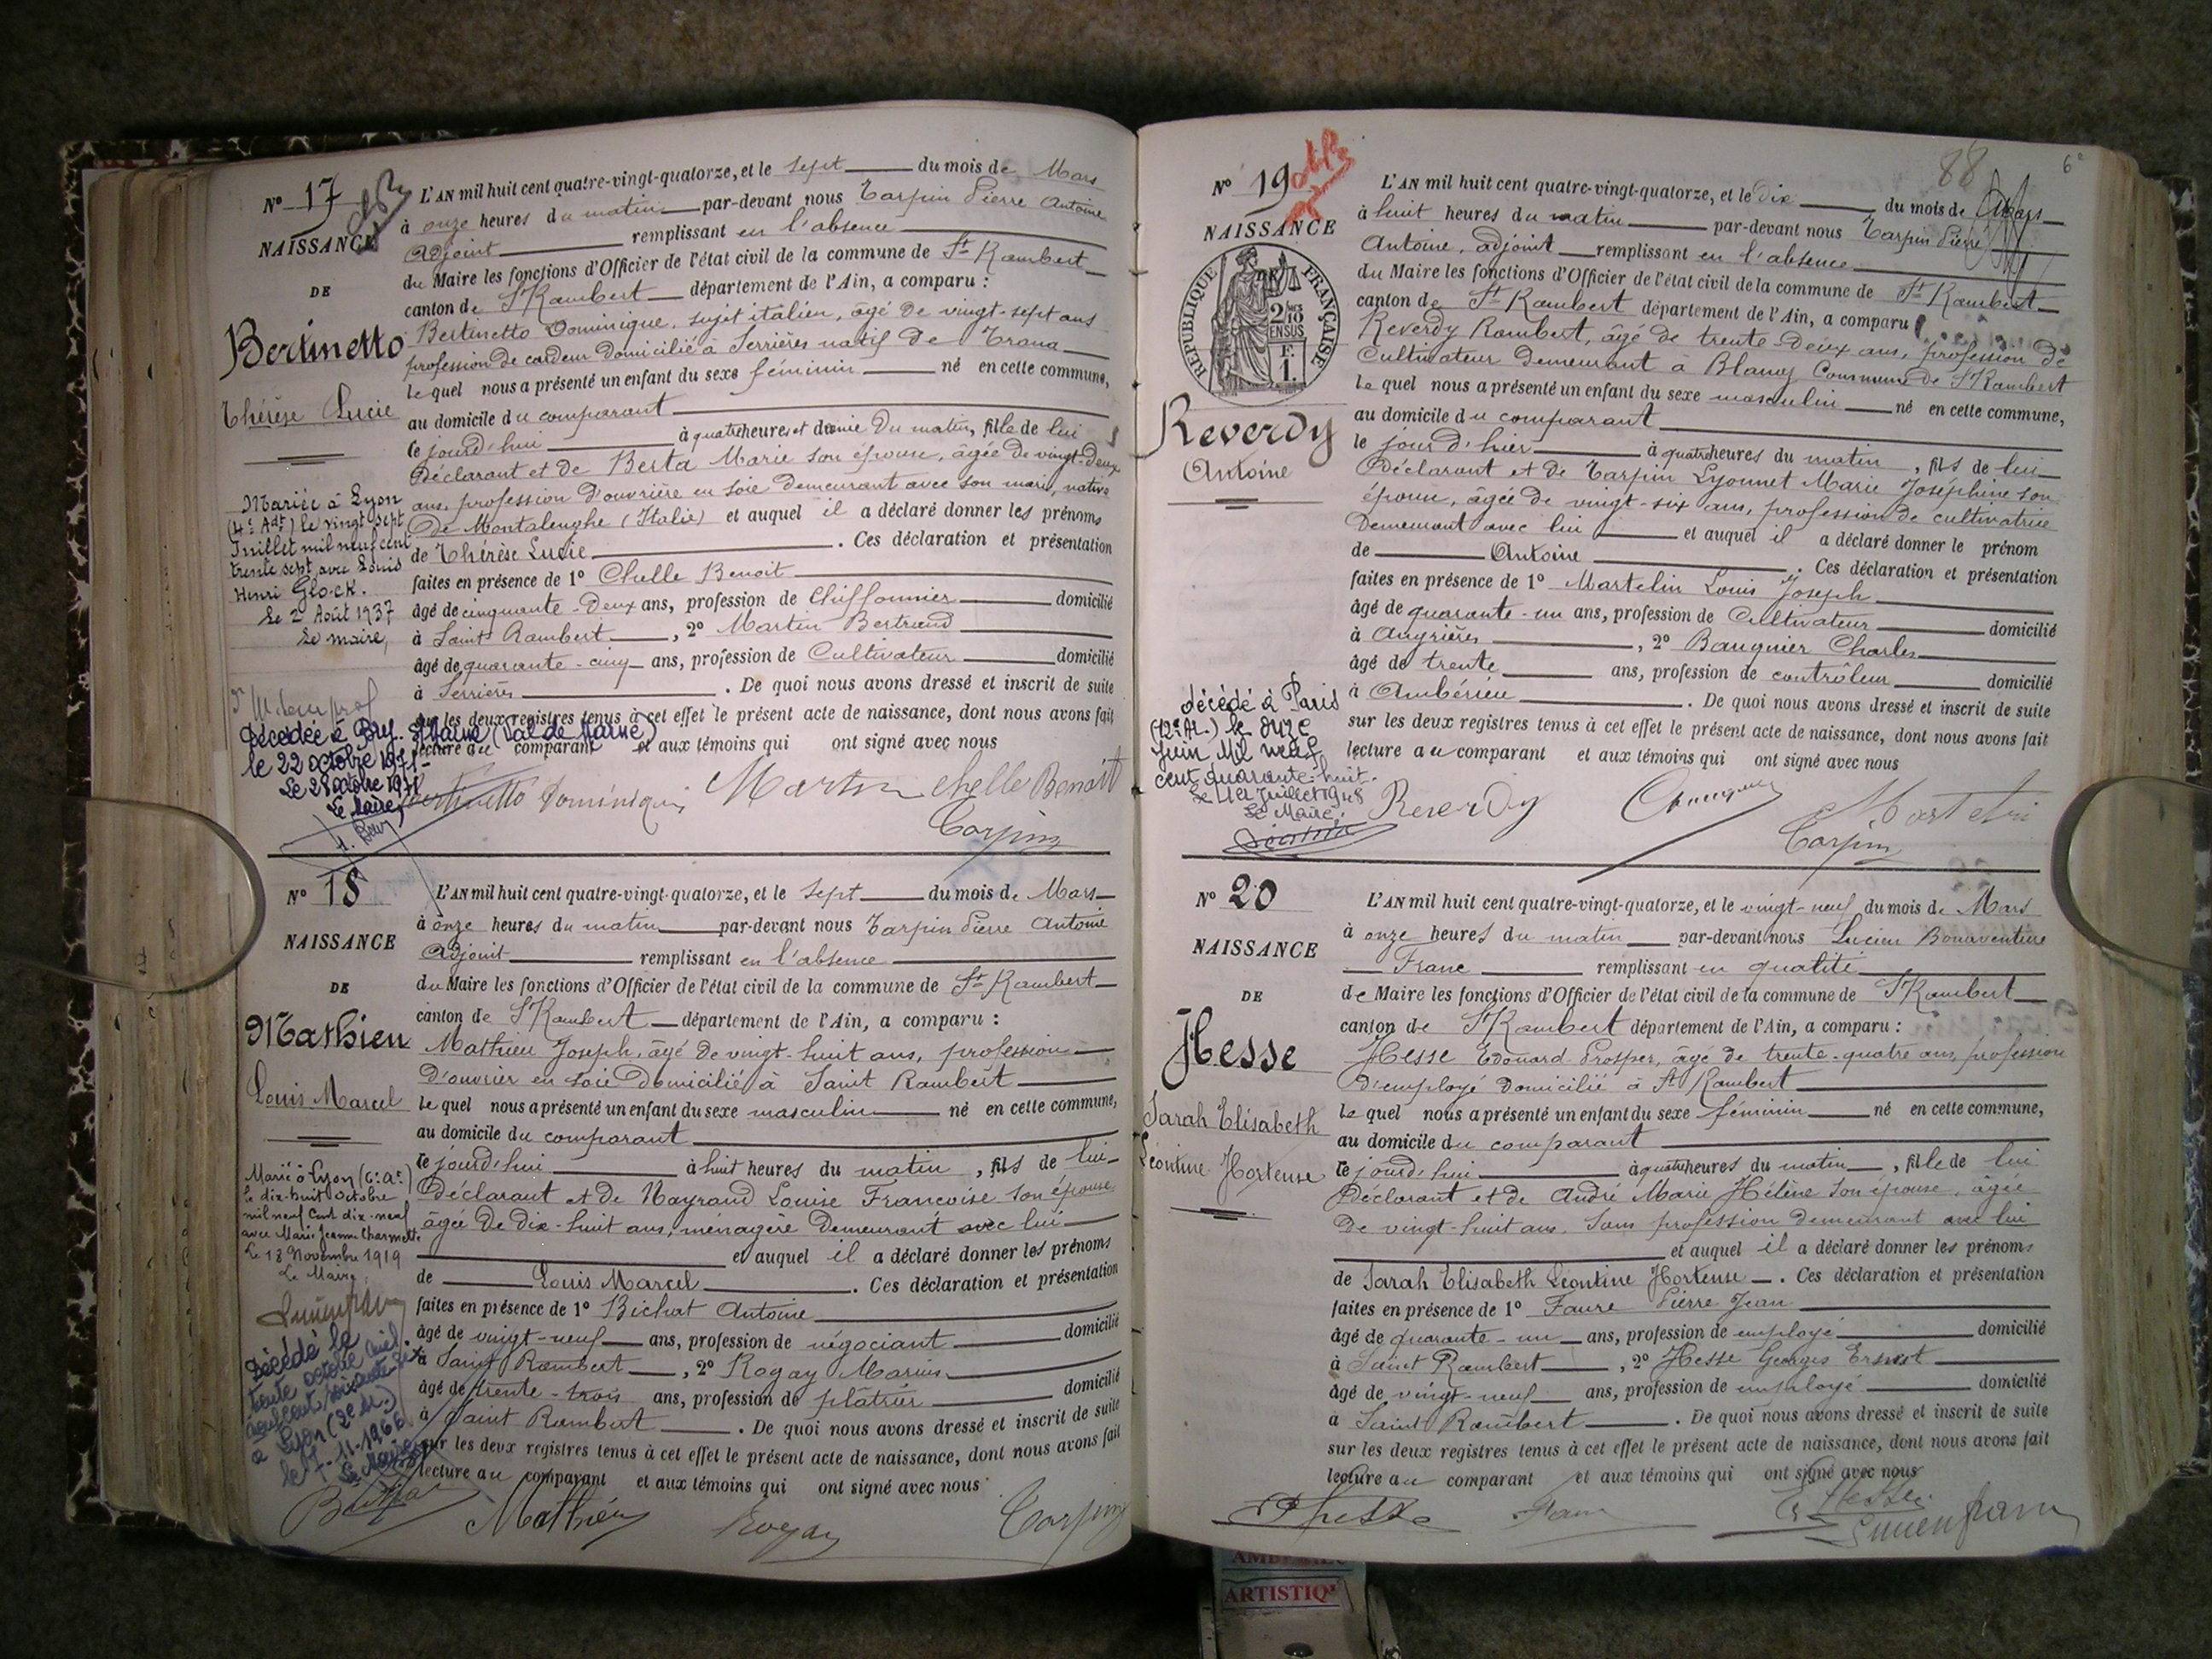 N° 17
NAISSANCE
DE
Bertinetto
Thérèse Lucie
Mariée à Lyon
(4e Adt) le vingt sept
Juillet mil neuf cent
trente sept avec Louis
Henri Glock.
Le 2 Août 1937
Le maire,
Décédée à Bry. S/Marne (Val de Marne)
le 22 octobre 1971-
Le 28 octobre 1971
Le Maire,
L'AN mil huit cent quatre-vingt-quatorze, et le sept du mois de Mars
à onze heures du matin par-devant nous Tarpin Pierre Antoine
Adjoint remplissant en l'absence
du Maire les fonctions d'Officier de l'état civil de la commune de St Rambert
canton de St Rambert département de l'Ain, a comparu :
Bertinetto Dominique, sujet italien, âgé de vingt-sept ans
profession de cardeur domicilié à Serrières natif de Trana
lequel nous a présenté un enfant du sexe féminin né en cette commune,
au domicile du comparant
le jourd'hui à quatre heures et demie du matin, fille de lui
Déclarant et de Berta Marie son épouse, âgée de vingt-deux
ans, profession d'ouvrière en soie demeurant avec son mari, native
de Montalenghe (Italie) et auquel il a déclaré donner les prénoms
de Thérèse Lucie . Ces déclaration et présentation
faites en présence de 1° Chelle Benoit
âgé de cinquante-deux ans, profession de Chiffonnier domicilié
à Saint Rambert , 2° Martin Bertrand
âgé de quarante-cinq ans, profession de Cultivateur domicilié
à Serrières . De quoi nous avons dressé et inscrit de suite
sur les deux registres tenus à cet effet le présent acte de naissance, dont nous avons fait
lecture au comparant et aux témoins qui ont signé avec nous
Bertinetto Dominique Martin Chelle Benoit
Tarpin
N° 18
NAISSANCE
DE
Mathieu
Louis Marcel
Marié à Lyon (6e Ac)
le dix-huit Octobre
mil neuf cent dix-neuf
avec Marie Jeanne Charmette
Le 13 Novembre 1919
Le Maire,
Décédé le
trente octobre mil
neuf cent soixante six
à Lyon (2e Ar.)
le 7-11-1966
Le Maire
L'AN mil huit cent quatre-vingt-quatorze, et le sept du mois de Mars
à onze heures du matin par-devant nous Tarpin Pierre Antoine
Adjoint remplissant en l'absence
du Maire les fonctions d'Officier de l'état civil de la commune de St Rambert
canton de St Rambert département de l'Ain, a comparu :
Mathieu Joseph, âgé de vingt-huit ans, profession
d'ouvrier en soie domicilié à Saint Rambert
lequel nous a présenté un enfant du sexe masculin né en cette commune,
au domicile du comparant
le jourd'hui à huit heures du matin , fils de lui
Déclarant et de Nayrand Louise Françoise son épouse
âgée de dix-huit ans, ménagère demeurant avec lui
et auquel il a déclaré donner les prénoms
de Louis Marcel . Ces déclaration et présentation
faites en présence de 1° Bichat Antoine
âgé de vingt-neuf ans, profession de négociant domicilié
à Saint Rambert , 2° Rogay Marius
âgé de trente-trois ans, profession de plâtrier domicilié
à Saint Rambert . De quoi nous avons dressé et inscrit de suite
sur les deux registres tenus à cet effet le présent acte de naissance, dont nous avons fait
lecture au comparant et aux témoins qui ont signé avec nous
Mathieu Rogay Tarpin
88
6e
N° 19
NAISSANCE
REPUBLIQUE FRANÇAISE
2/10 EN SUS
F. 1.
Reverdy
Antoine
décédé à Paris
(12e Ar.) le onze
Juin Mil neuf
cent quarante-huit.
Le 1er Juillet 1948
Le Maire,
L'AN mil huit cent quatre-vingt-quatorze, et le dix du mois de Mars
à huit heures du matin par-devant nous Tarpin Pierre
Antoine, adjoint remplissant en l'absence
du Maire les fonctions d'Officier de l'état civil de la commune de St Rambert
canton de St Rambert département de l'Ain, a comparu
Reverdy Rambert, âgé de trente-deux ans, profession de
Cultivateur demeurant à Blanay Commune de St Rambert
lequel nous a présenté un enfant du sexe masculin né en cette commune,
au domicile du comparant
le jour d'hier à quatre heures du matin , fils de lui
Déclarant et de Tarpin Lyonnet Marie Joséphine son
épouse, âgée de vingt-six ans, profession de cultivatrice
demeurant avec lui et auquel il a déclaré donner le prénom
de Antoine . Ces déclaration et présentation
faites en présence de 1° Martelin Louis Joseph
âgé de quarante-un ans, profession de Cultivateur domicilié
à Angrières , 2° Bauquier Charles
âgé de trente ans, profession de contrôleur domicilié
à Ambérieu . De quoi nous avons dressé et inscrit de suite
sur les deux registres tenus à cet effet le présent acte de naissance, dont nous avons fait
lecture au comparant et aux témoins qui ont signé avec nous
Reverdy Martelin
Tarpin
N° 20
NAISSANCE
DE
Hesse
Sarah Elisabeth
Léontine Hortense
L'AN mil huit cent quatre-vingt-quatorze, et le vingt-neuf du mois de Mars
à onze heures du matin par-devant nous Lucien Bonaventure
Franc remplissant en qualité
de Maire les fonctions d'Officier de l'état civil de la commune de St Rambert
canton de St Rambert département de l'Ain, a comparu :
Hesse Edouard Prosper, âgé de trente-quatre ans, profession
d'employé domicilié à St Rambert
lequel nous a présenté un enfant du sexe féminin né en cette commune,
au domicile du comparant
le jourd'hui à quatre heures du matin , fille de lui
Déclarant et de André Marie Hélène son épouse, âgée
de vingt-huit ans, sans profession demeurant avec lui
et auquel il a déclaré donner les prénoms
de Sarah Elisabeth Léontine Hortense . Ces déclaration et présentation
faites en présence de 1° Faure Pierre Jean
âgé de quarante-un ans, profession de employé domicilié
à Saint Rambert , 2° Hesse Georges Ernest
âgé de vingt-neuf ans, profession de employé domicilié
à Saint Rambert . De quoi nous avons dressé et inscrit de suite
sur les deux registres tenus à cet effet le présent acte de naissance, dont nous avons fait
lecture au comparant et aux témoins qui ont signé avec nous
Hesse
Lucien Franc
ARTISTIQ